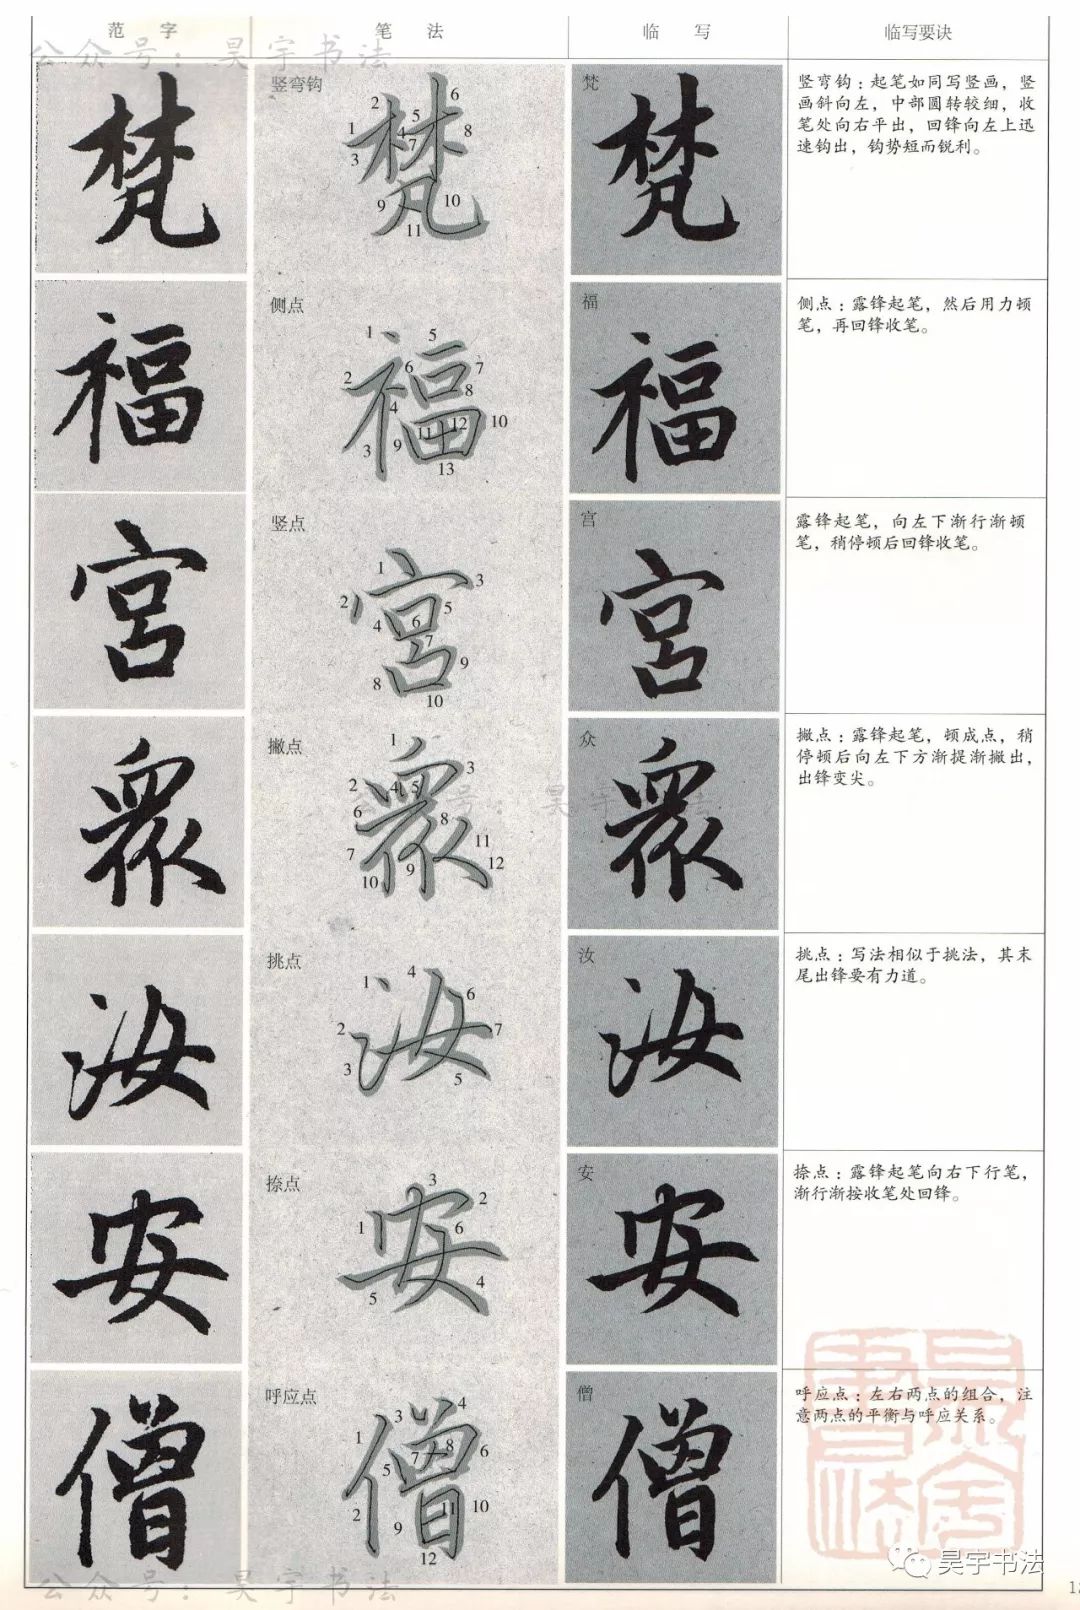 范 字 笔 法 临 写 临写要诀
公众号：昊宇书法
梵
竖弯钩
2 6
5
1 4 8
7
3
9 10
11
梵
梵
竖弯钩：起笔如同写竖画，竖
画斜向左，中部圆转较细，收
笔处向右平出，回锋向左上迅
速钩出，钩势短而锐利。
福
侧点
1 5
6 7
2 8
4
11 12 10
3 9
13
福
福
侧点：露锋起笔，然后用力顿
笔，再回锋收笔。
宫
竖点
1 3
2 5
4 6
7
9
8
10
宫
宫
露锋起笔，向左下渐行渐顿
笔，稍停顿后回锋收笔。
眾
撇点
1
3
2 4 5
6 8
11
7 12
9
10
众
眾
撇点：露锋起笔，顿成点，稍
停顿后向左下方渐提渐撇出，
出锋变尖。
公众号：昊宇书法
汝
挑点
1 4
6
2 7
3 5
汝
汝
挑点：写法相似于挑法，其末
尾出锋要有力道。
安
捺点
3
2
1 6
4
5
安
安
捺点：露锋起笔向右下行笔，
渐行渐按收笔处回锋。
僧
呼应点
3 4
1 8 6
7
5
2 11 10
9
12
僧
僧
呼应点：左右两点的组合，注
意两点的平衡与呼应关系。
昊宇书法
公众号：昊宇书法